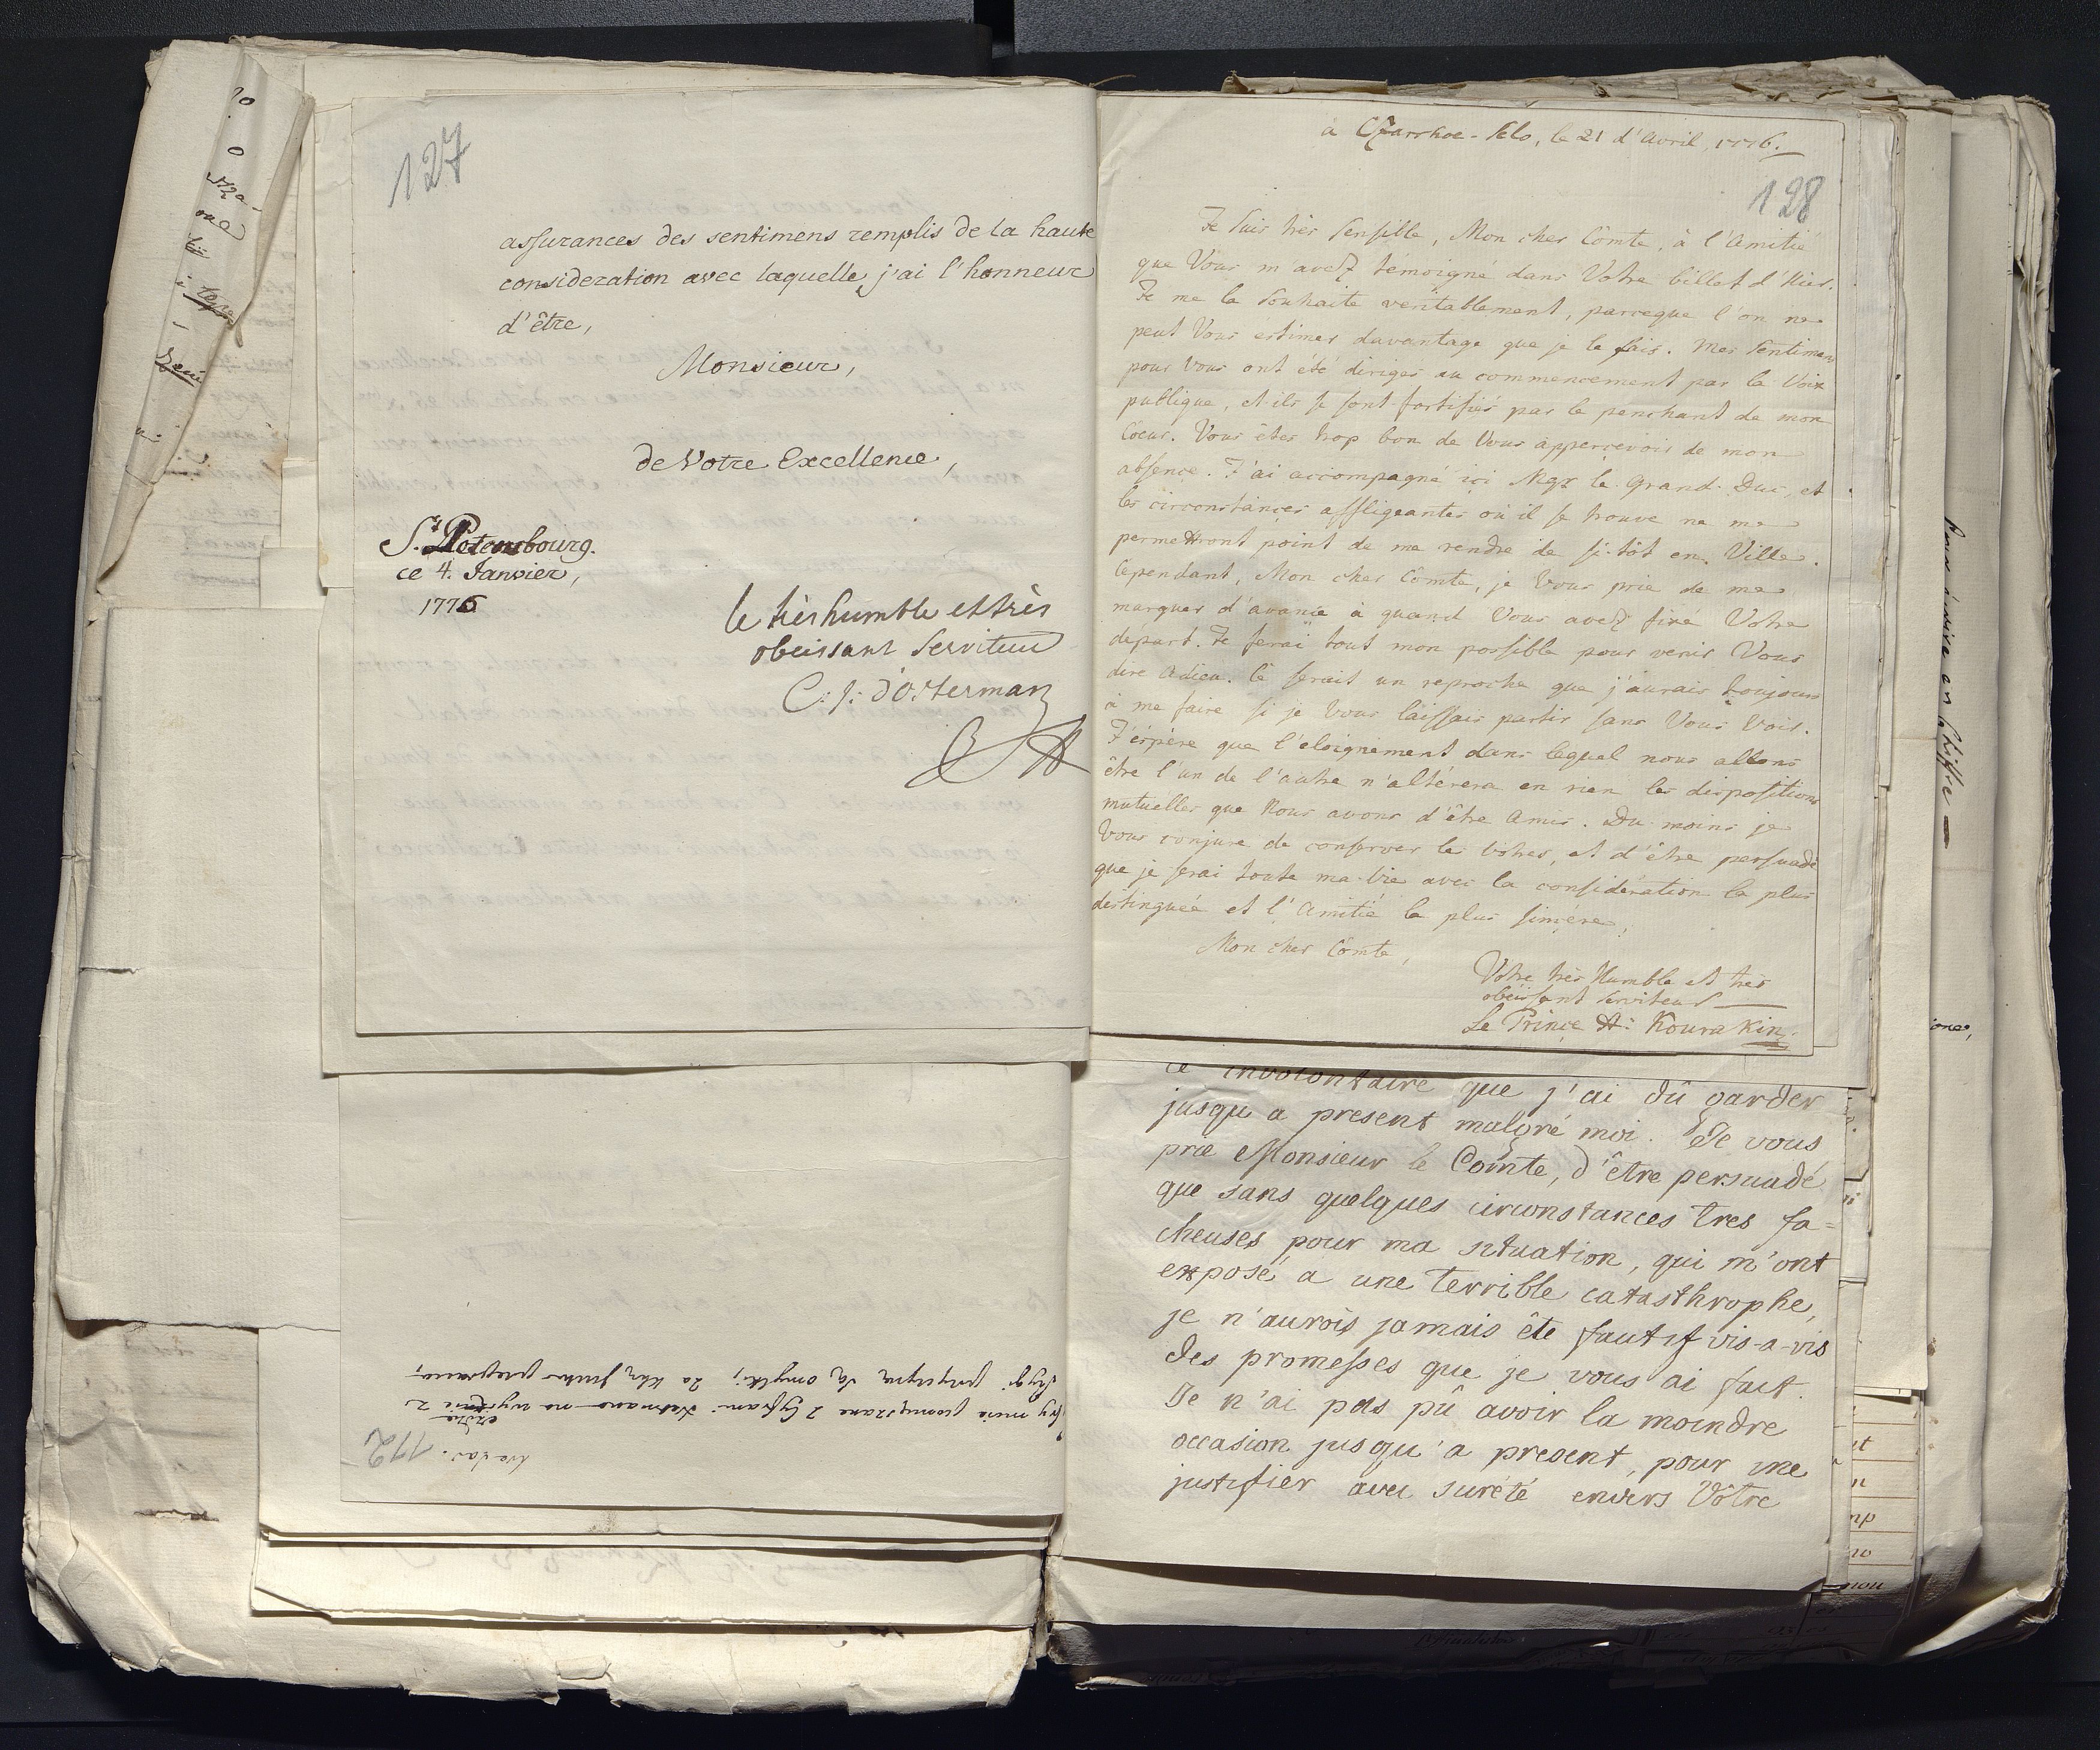 127
assurances des sentimens remplis de la haute
consideration avec laquelle j'ai l'honneur
d'être,
Monsieur,
de Votre Excellence,
St. Petersbourg.
ce 4. Janvier,
1776
le très humble et très
obeissant Serviteur
C: J: d'Osterman
à Czarskoe-Selo, le 21 d'Avril, 1776.
128
Je suis très sensible, Mon cher Comte, à l'Amitié
que Vous m'avez témoigné dans Votre billet d'Hier.
Je me la souhaite veritablement, parceque l'on ne
peut Vous estimer davantage que je le fais. Mes Sentimens
pour Vous ont été diriges au commencement par la Voix
publique, et ils se sont fortifiés par le penchant de mon
Coeur. Vous êtes trop bon de Vous appercevoir de mon
absence. J'ai accompagné ici Mgr le Grand-Duc, et
les circonstances affligeantes où il se trouve ne me
permettront point de me rendre de si-tôt en Ville.
Cependant, Mon cher Comte, je Vous prie de me
marquer d'avance à quand Vous avez fixé Votre
départ. Je ferai tout mon possible pour venir Vous
dire Adieu. Ce serait un reproche que j'aurais toujours
à me faire si je Vous laissais partir sans Vous Voir.
J'éspère que l'éloignement dans lequel nous allons
être l'un de l'autre n'altérera en rien les dispositions
mutuelles que Nous avons d'être Amis. Du moins je
Vous conjure de conserver le Votres, et d'être persuadé
que je serai toute ma Vie avec la considération la plus
distinguée et l'Amitié la plus sincère,
Mon cher Comte,
Votre très Humble et très
obeissant Serviteur
Le Prince A: Kourakin.
ce involontaire que j'ai dû garder
jusqu a present malgré moi. Je vous
prie Monsieur le Comte, d'être persuadé
que sans quelques circonstances tres fa=
cheuses pour ma situation, qui m'ont
exposé a une terrible catasthrophe,
je n'aurois jamais été fautif vis-a-vis
des promesses que je vous ai fait.
Je n'ai pas pû avoir la moindre
occasion jusqu'a present, pour me
justifier avec sureté envers Vôtre
172